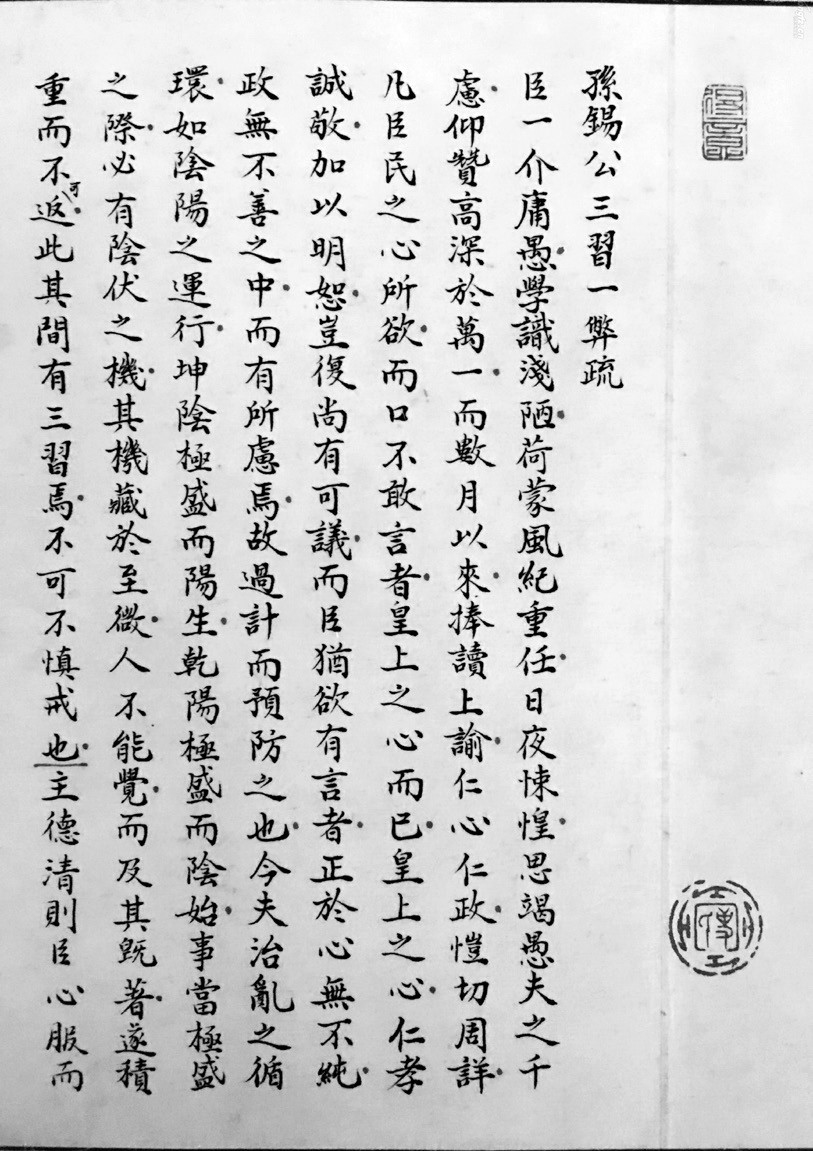 孫錫公三習一弊疏
臣一介庸愚學識淺陋荷蒙風紀重任日夜悚惶思竭愚夫之千
慮仰贊高深於萬一而數月以來捧讀上諭仁心仁政愷切周詳
凡臣民之心所欲而口不敢言者皇上之心而已皇上之心仁孝
誠敬加以明恕豈復尚有可議而臣猶欲有言者正於心無不純
政無不善之中而有所慮焉故過計而預防之也今夫治亂之循
環如陰陽之運行坤陰極盛而陽生乾陽極盛而陰始事當極盛
之際必有陰伏之機其機藏於至微人不能覺而及其既著遂積
重而不可返此其間有三習焉不可不慎戒也主德清則臣心服而